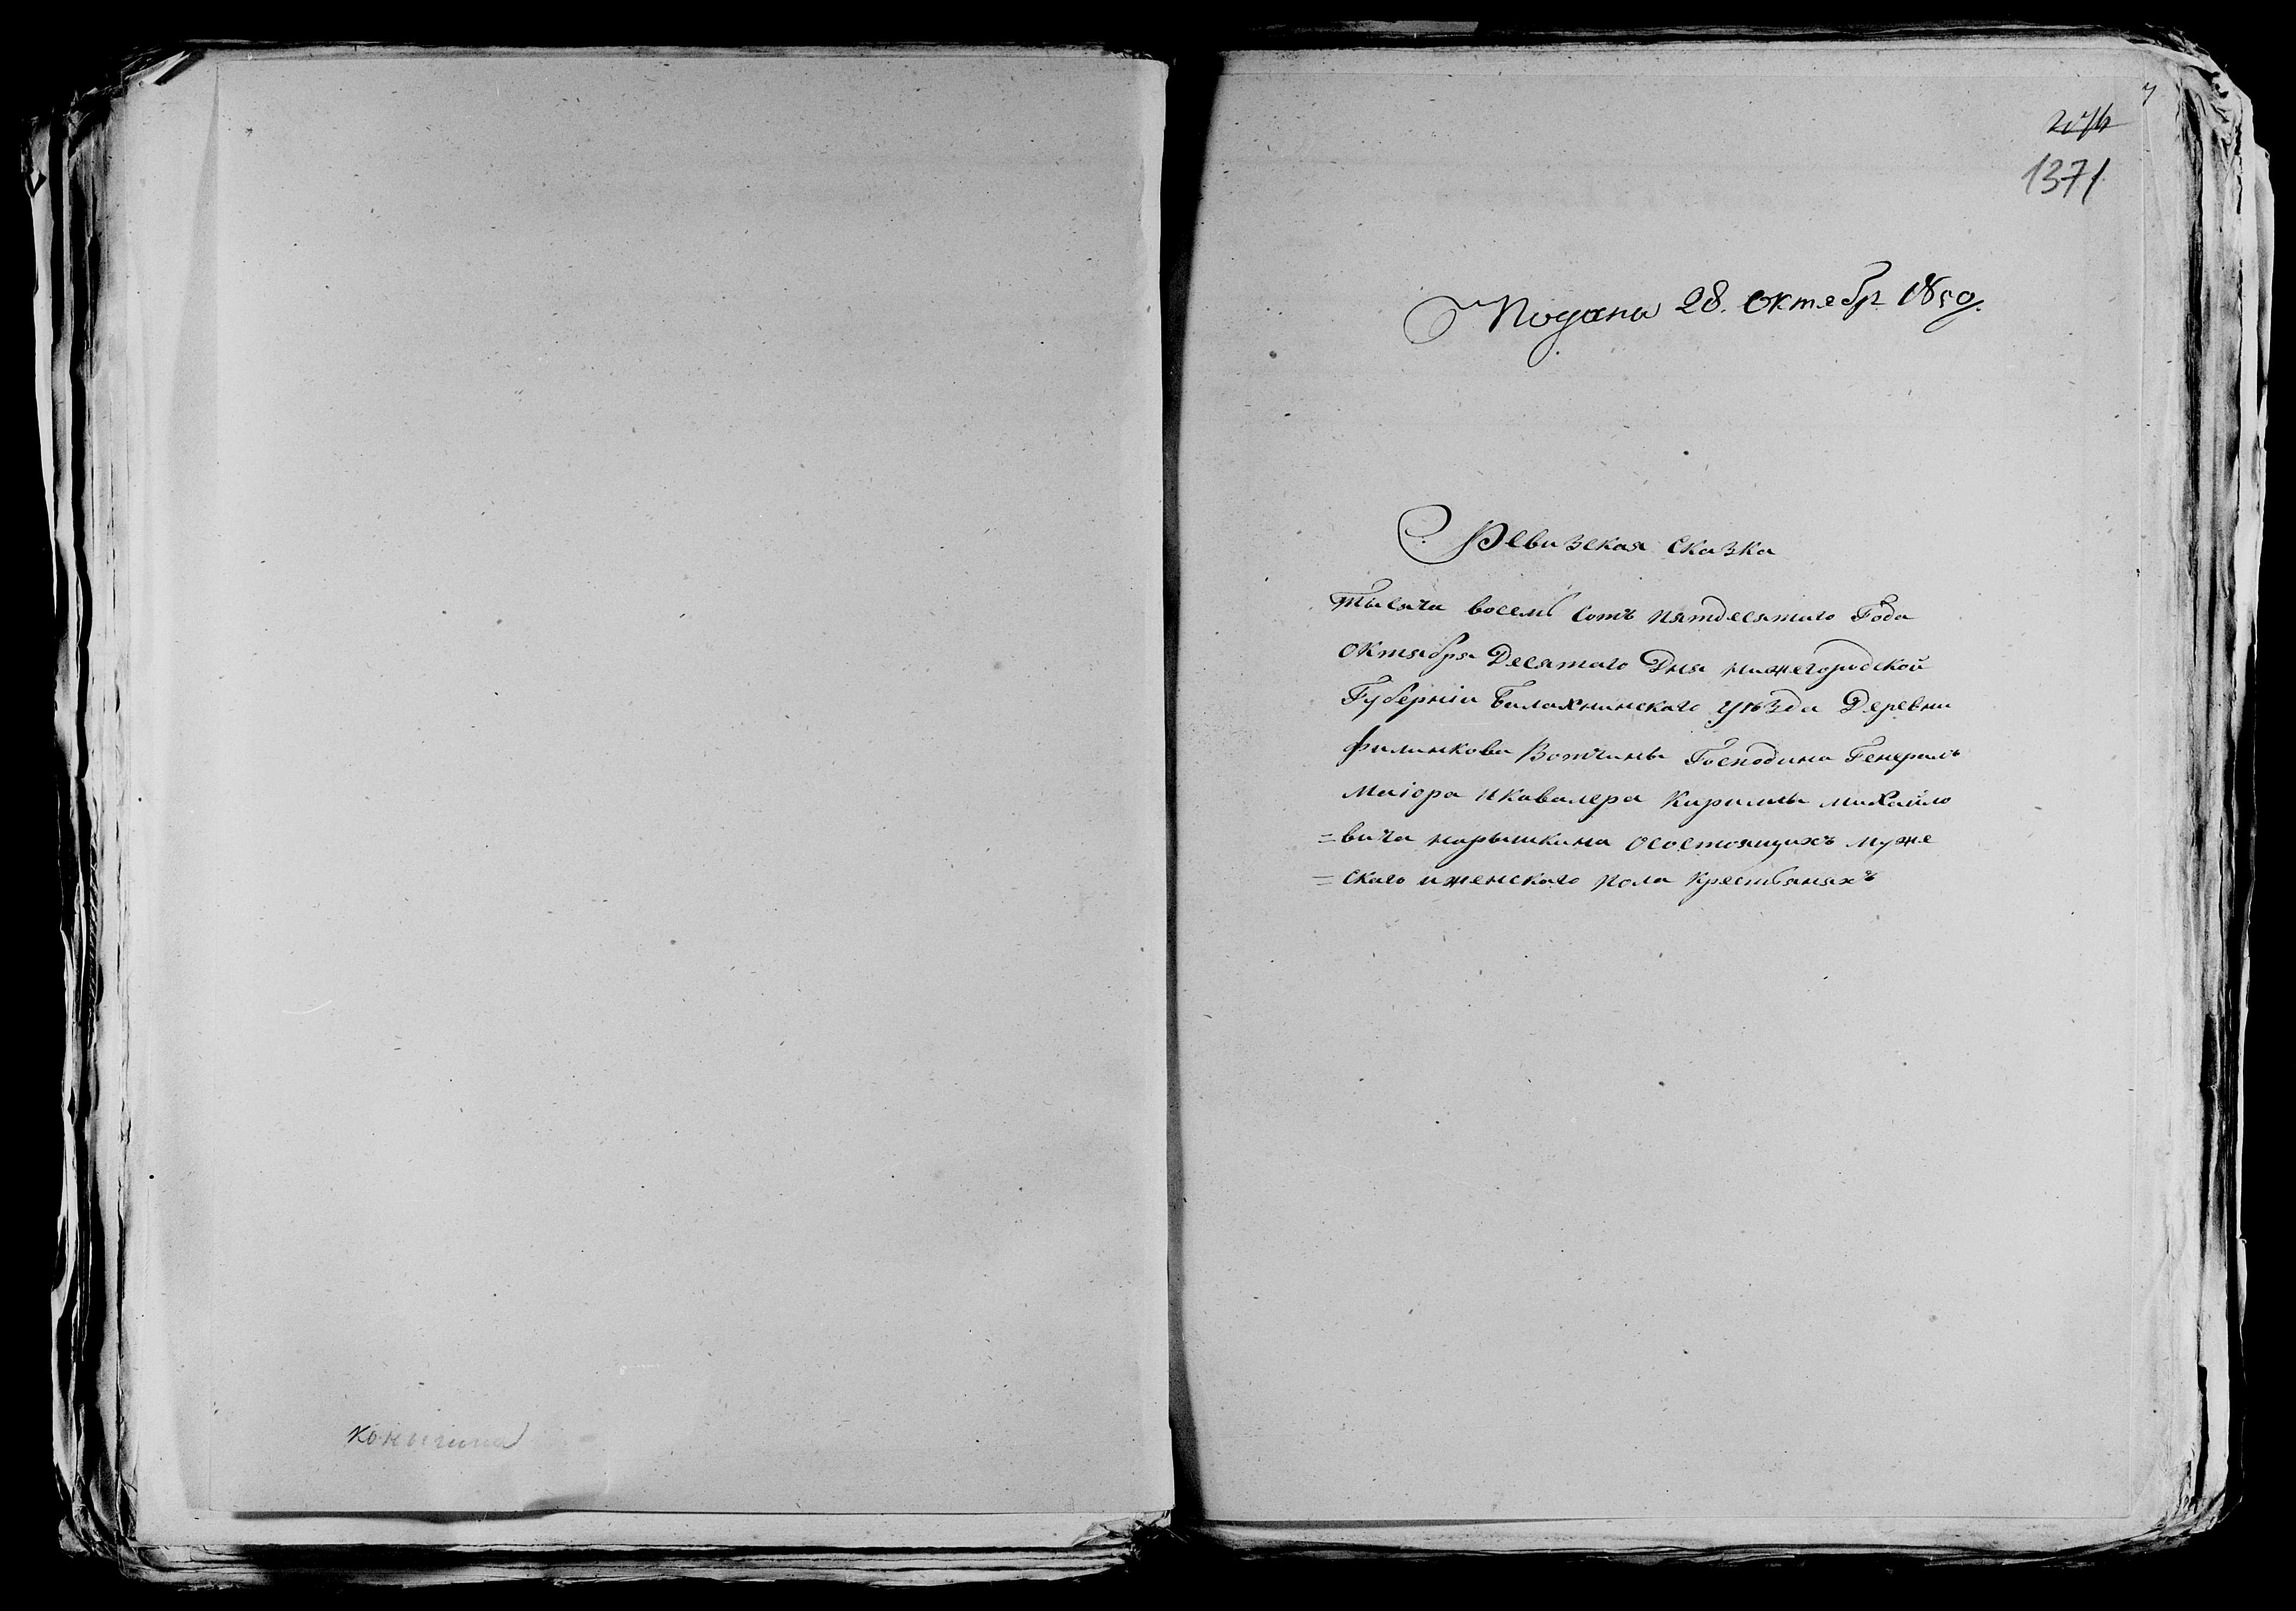 Конигина
1371
Подана 28. октебр 1850.
Ревизская сказка
Тысяча восемь сотъ пятдесятаго Года
октября Десятаго Дня нижегородской
Губерніи балахнинскаго уѣзда Деревни
филинкова Вотчины Господина Генералъ
Маіора и кавалера Кирилы михайло
=вича нарышкина осостоящихъ муже
=скаго иженскаго пола крестьянахъ